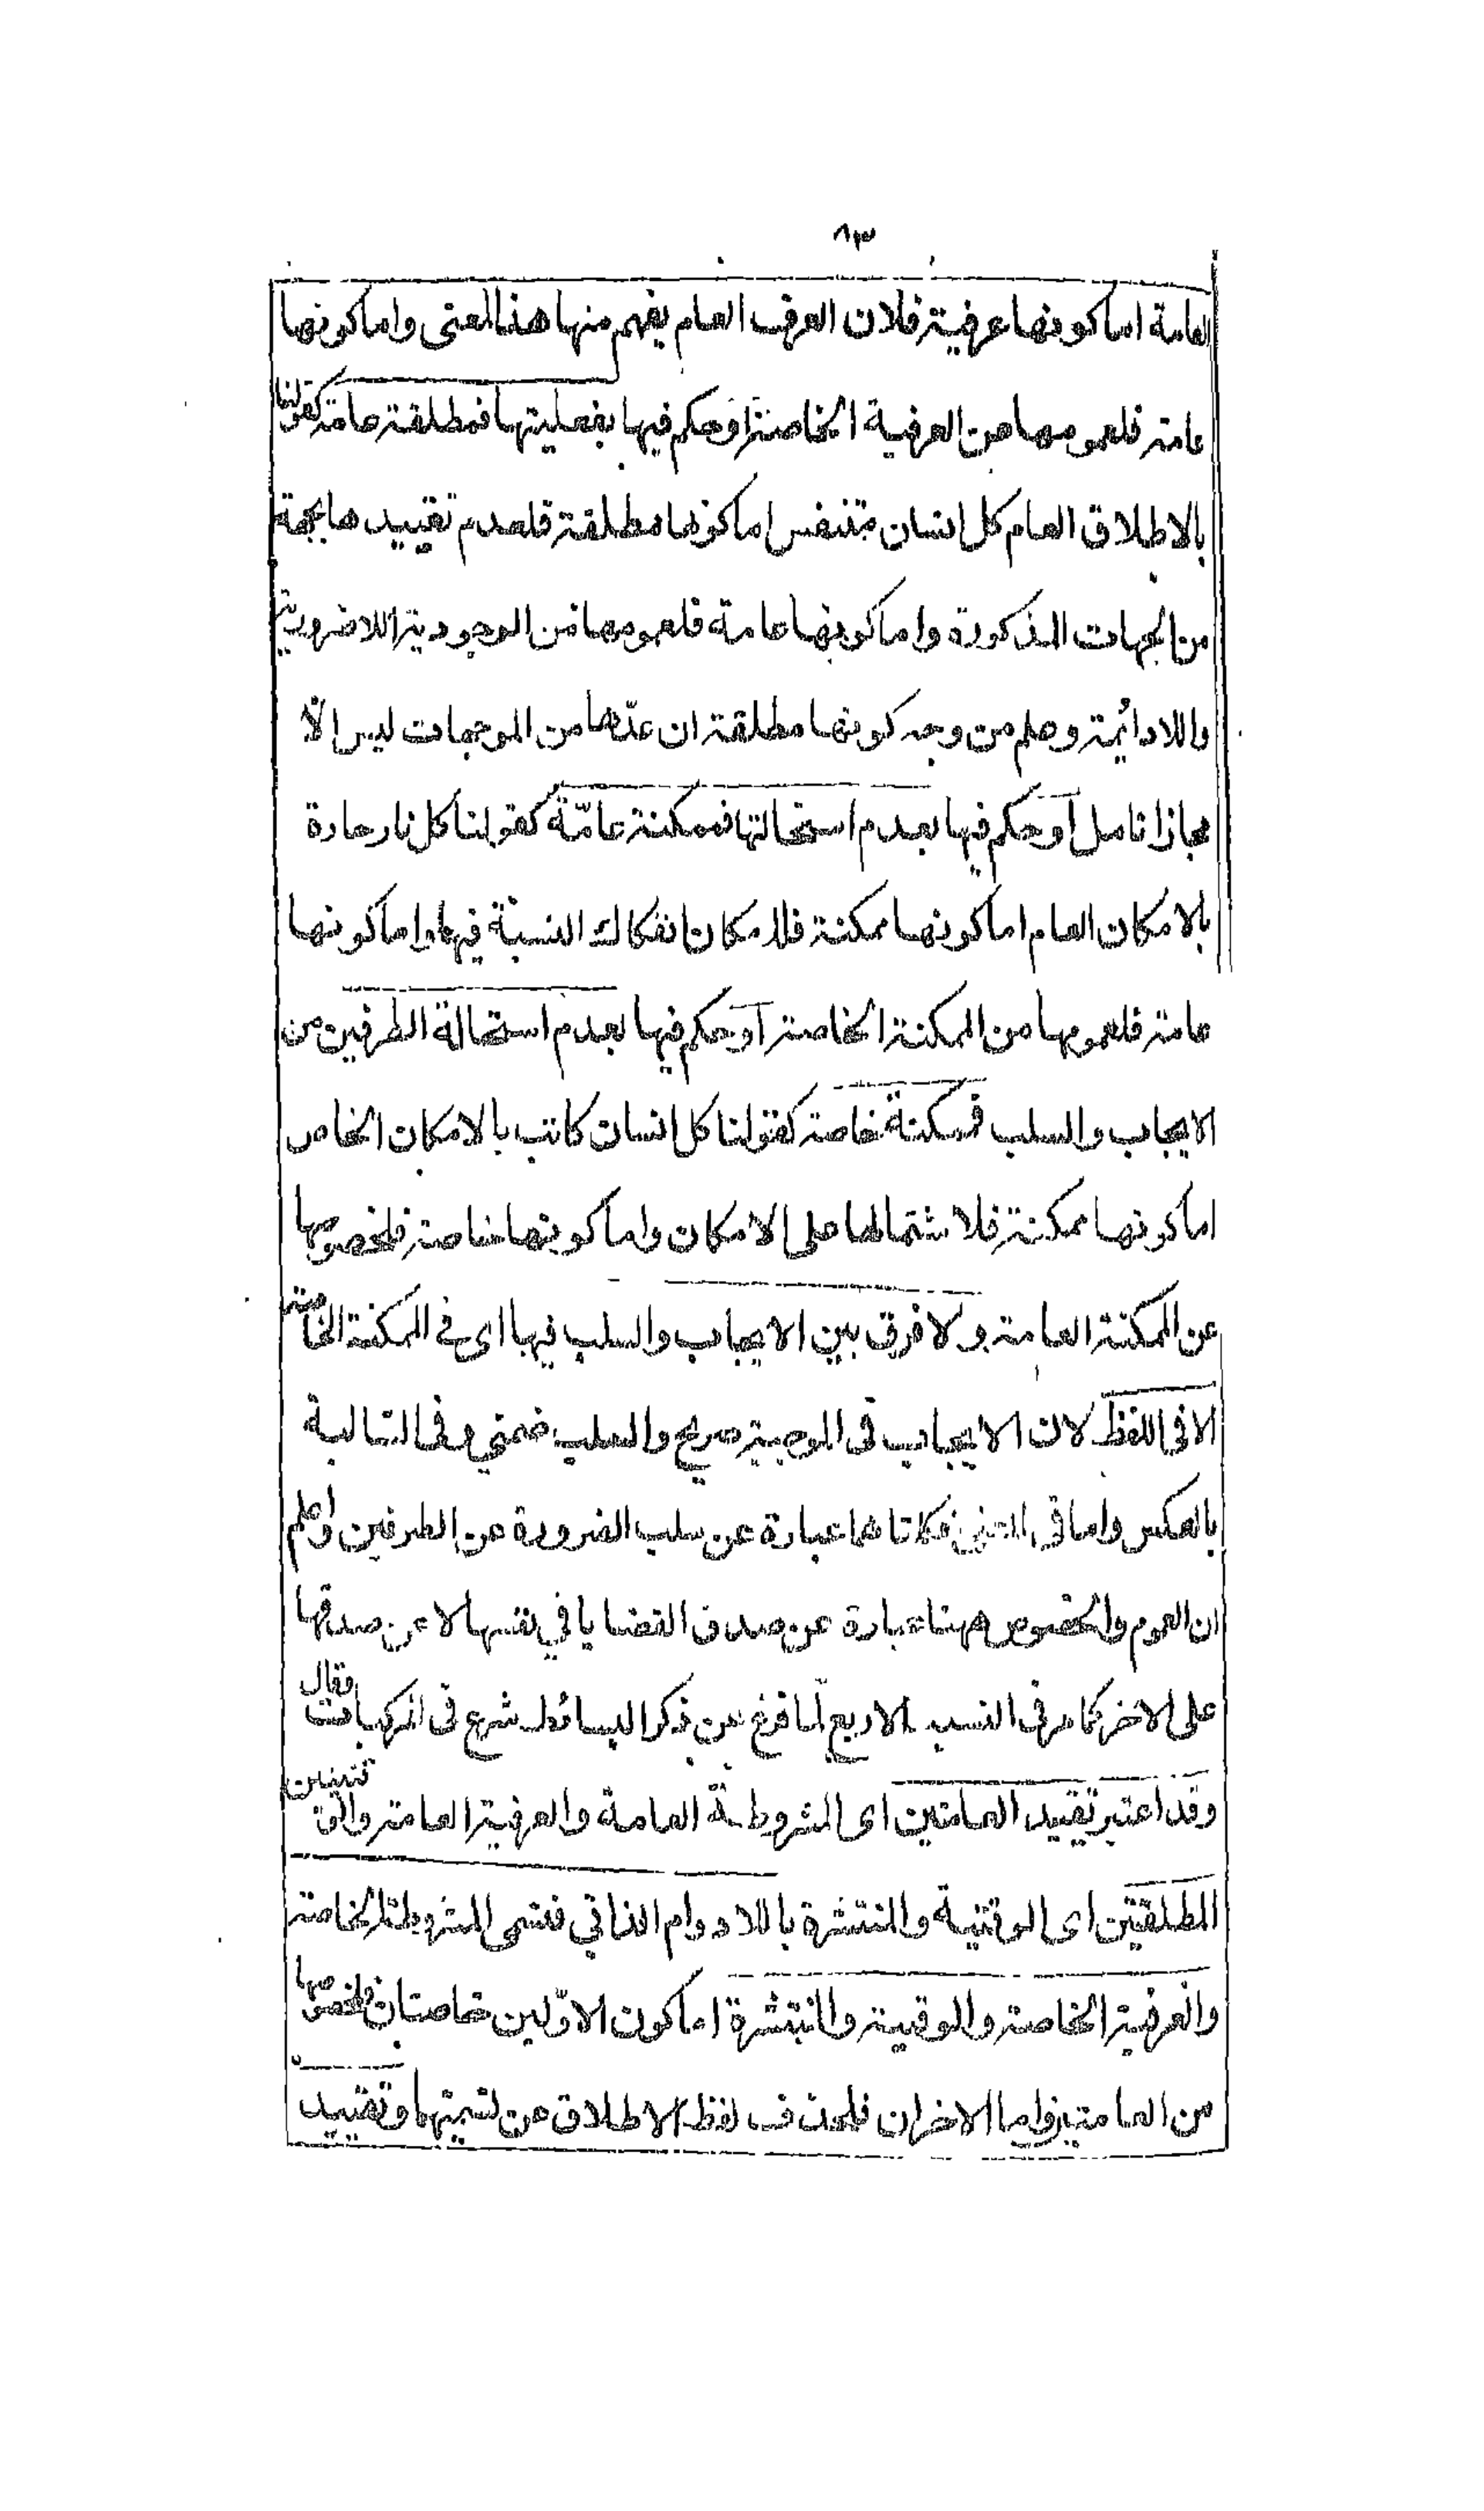 ٨٣
العامة اما كونها عرفية فلان العرف العام يفهم منها هذا المعنى واما كونها
عامة فلعمومها من العرفية الخاصة او حكم فيها بفعليتها فمطلقة عامة كقولنا
بالاطلاق العام كل انسان متنفس اما كونها مطلقة فلعدم تقييدها بجهة
من الجهات المذكورة واما كونها عامة فلعمومها من الوجودية اللاضرورية
واللادائمة وعلم من وجه كونها مطلقة ان عدّها من الموجهات ليس إلّا
مجازا تامل او حكم فيها بعدم استحالتها فممكنة عامّة كقولنا كل نار حارة
بالامكان العام اما كونها ممكنة فلامكان انفكاك النسبة فيها واما كونها
عامة فلعمومها من الممكنة الخاصة او حكم فيها بعدم استحالة الطرفين من
الايجاب والسلب فممكنة خاصة كقولنا كل انسان كاتب بالامكان الخاص
اما كونها ممكنة فلاشتمالها على الامكان واما كونها خاصة فلخصوصها
عن الممكنة العامة ولا فرق بين الايجاب والسلب فيها اى فى الممكنة الخاصة
الا فى اللفظ لان الايجاب فى الموجبة صريح والسلب ضمني وفى السالبة
بالعكس واما فى المعنى فكلتاهما عبارة عن سلب الضرورة عن الطرفين واعلم
ان العموم والخصوص ههنا عبارة عن صدق القضايا في نفسها لا عن صدقها
على الاخر كما مر فى النسب الاربع لمّا فرغ عن ذكر البسائط شرع فى المركبات فقال
وقد اعتبر تقييد العامتين اى المشروطة العامة والعرفية العامة والوقتيتين
المطلقتين اى الوقتية والمنتشرة باللادوام الذاتي فتسمى المشروطة الخاصة
والعرفية الخاصة والوقتية والمنتشرة اما كون الاوّلين خاصتان فلخصوصها
من العامتين واما الاخران فلحذف لفظ الاطلاق عن تسميتهما وتقييد